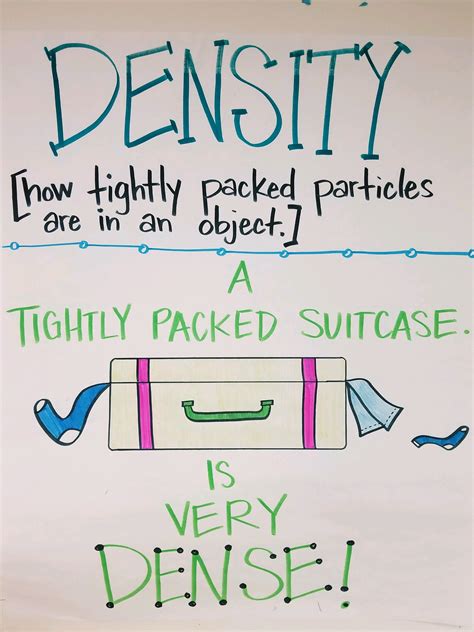 DENSITY
[how tightly packed particles
are in an object.]
A
TIGHTLY PACKED SUITCASE.
IS
VERY
DENSE!